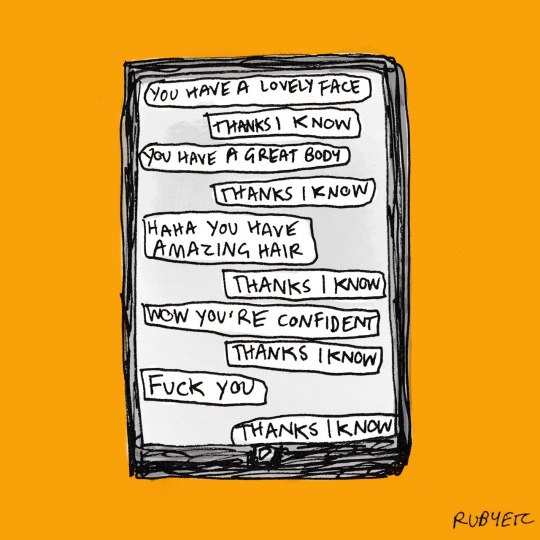 YOU HAVE A LOVELY FACE
THANKS I KNOW
YOU HAVE A GREAT BODY
THANKS I KNOW
HAHA YOU HAVE
AMAZING HAIR
THANKS I KNOW
WOW YOU'RE CONFIDENT
THANKS I KNOW
FUCK YOU
THANKS I KNOW
RUBYETC